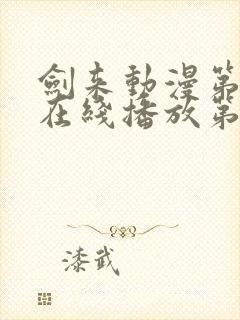 劍来動漫第
在綫播放第
漆武